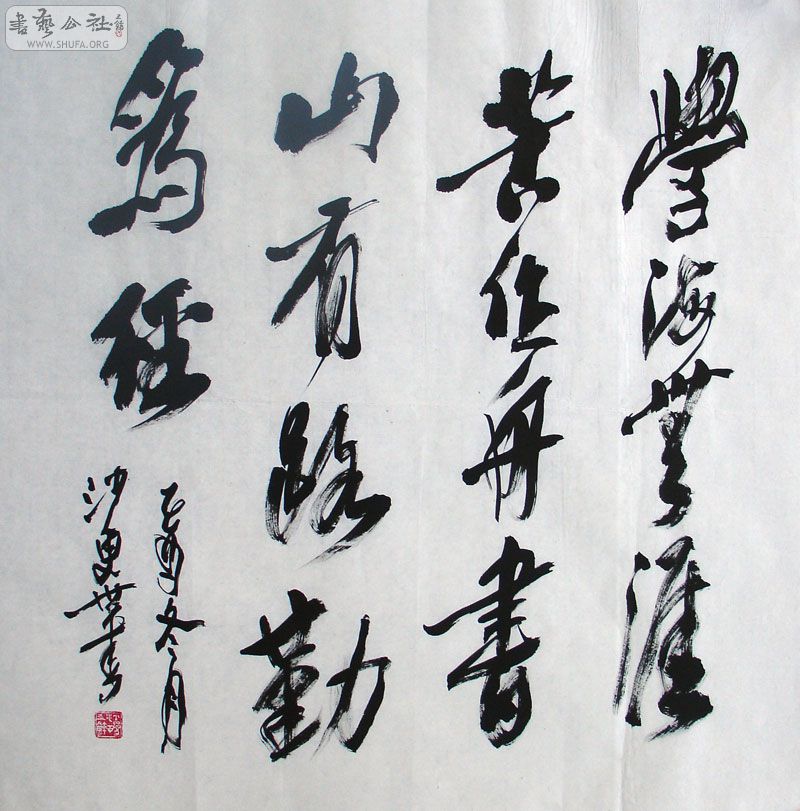 學海無涯
苦作舟書
山有路勤
為徑
乙酉冬月
書藝公社
WWW.SHUFA.ORG